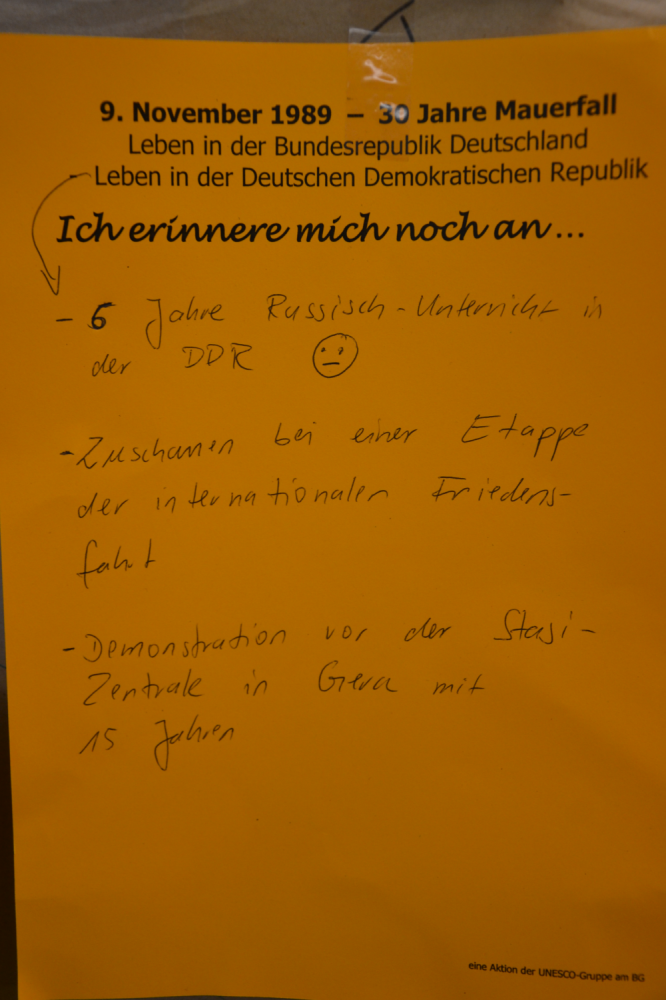 9. November 1989 – 30 Jahre Mauerfall
Leben in der Bundesrepublik Deutschland
Leben in der Deutschen Demokratischen Republik
Ich erinnere mich noch an ...
- 6 Jahre Russisch-Unterricht in
der DDR
- Zuschauen bei einer Etappe
der internationalen Friedens-
fahrt
- Demonstration vor der Stasi-
Zentrale in Gera mit
15 Jahren
eine Aktion der UNESCO-Gruppe am BG